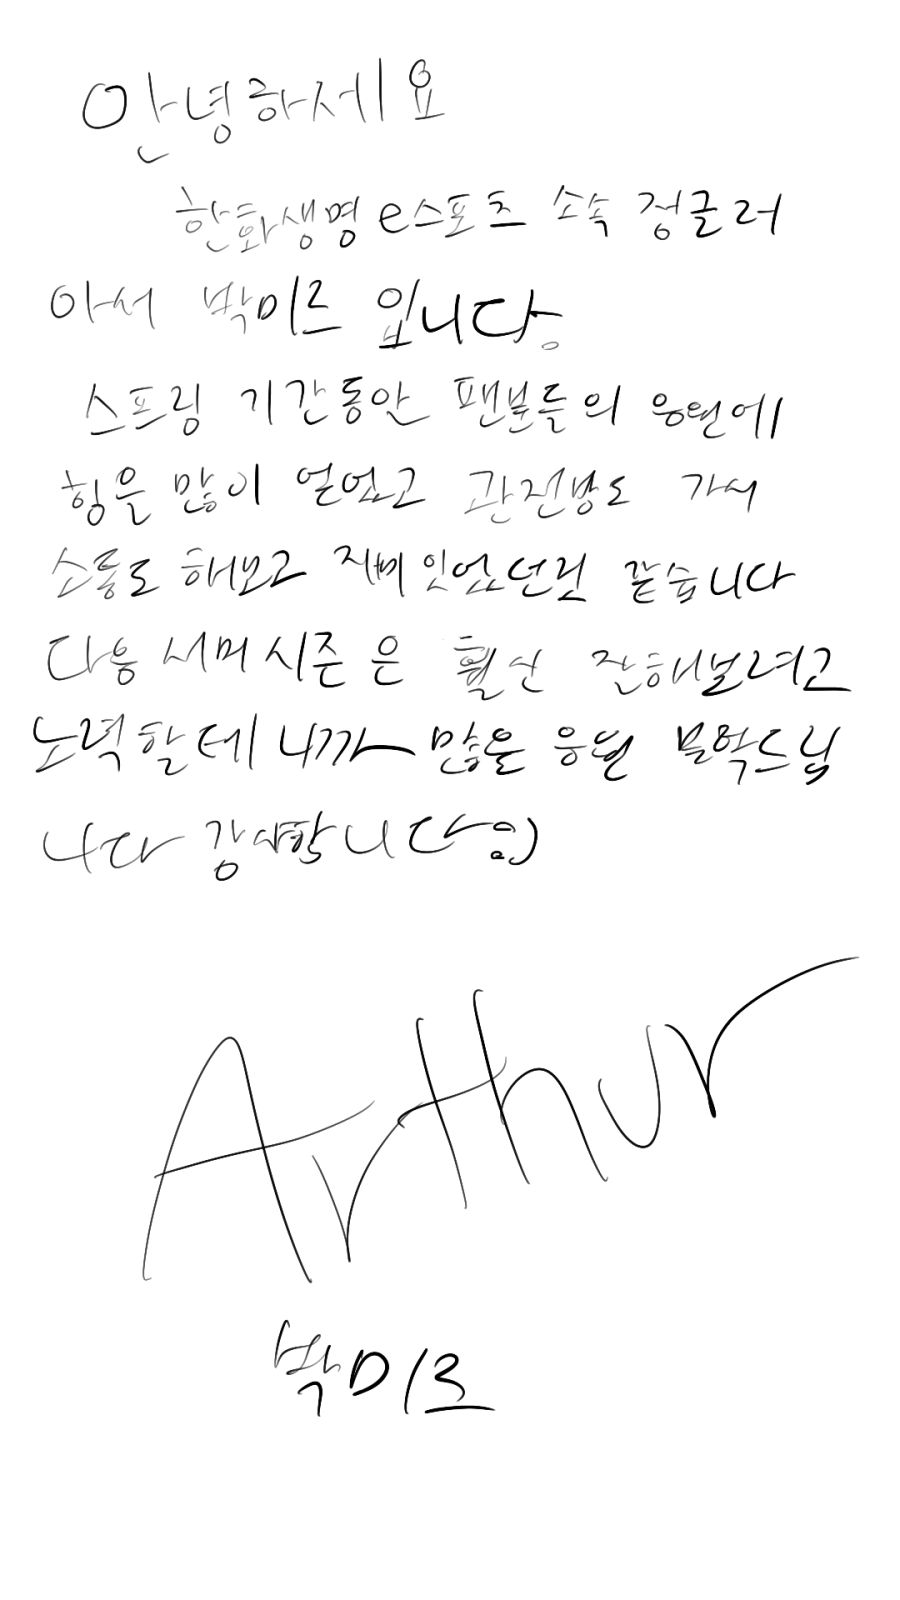 안녕하세요
한화생명 e스포츠 소속 정글러
아서 박미르 입니다.
스프링 기간동안 팬분들의 응원에
힘을 많이 얻었고 관전방도 가서
소통도 해보고 재미있었던것 같습니다
다음 서머시즌은 훨신 잘해보려고
노력할테니까 많은 응원 부탁드립
니다 감사합니다 :)
Arthur
박미르